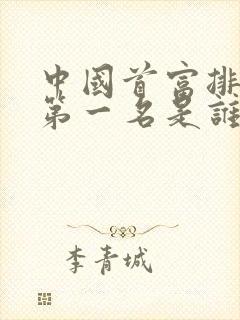 中國首富排
第一名是誰
李青城